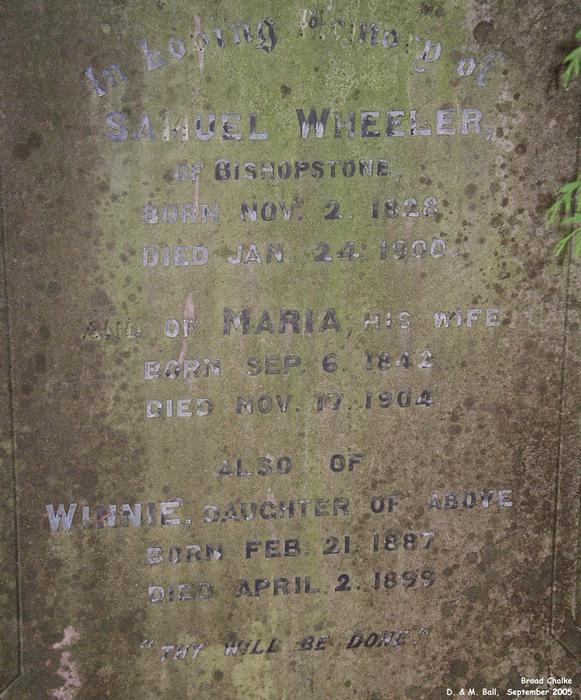 In Loving Memory of
SAMUEL WHEELER,
OF BISHOPSTONE.
BORN NOV. 2. 1828
DIED JAN. 24. 1900.
AND OF MARIA, HIS WIFE
BORN SEP. 6. 1842
DIED NOV. 17. 1904
ALSO OF
WINNIE, DAUGHTER OF ABOVE
BORN FEB. 21. 1887
DIED APRIL 2. 1899
"THY WILL BE DONE."
Broad Chalke
D. & M. Ball, September 2005